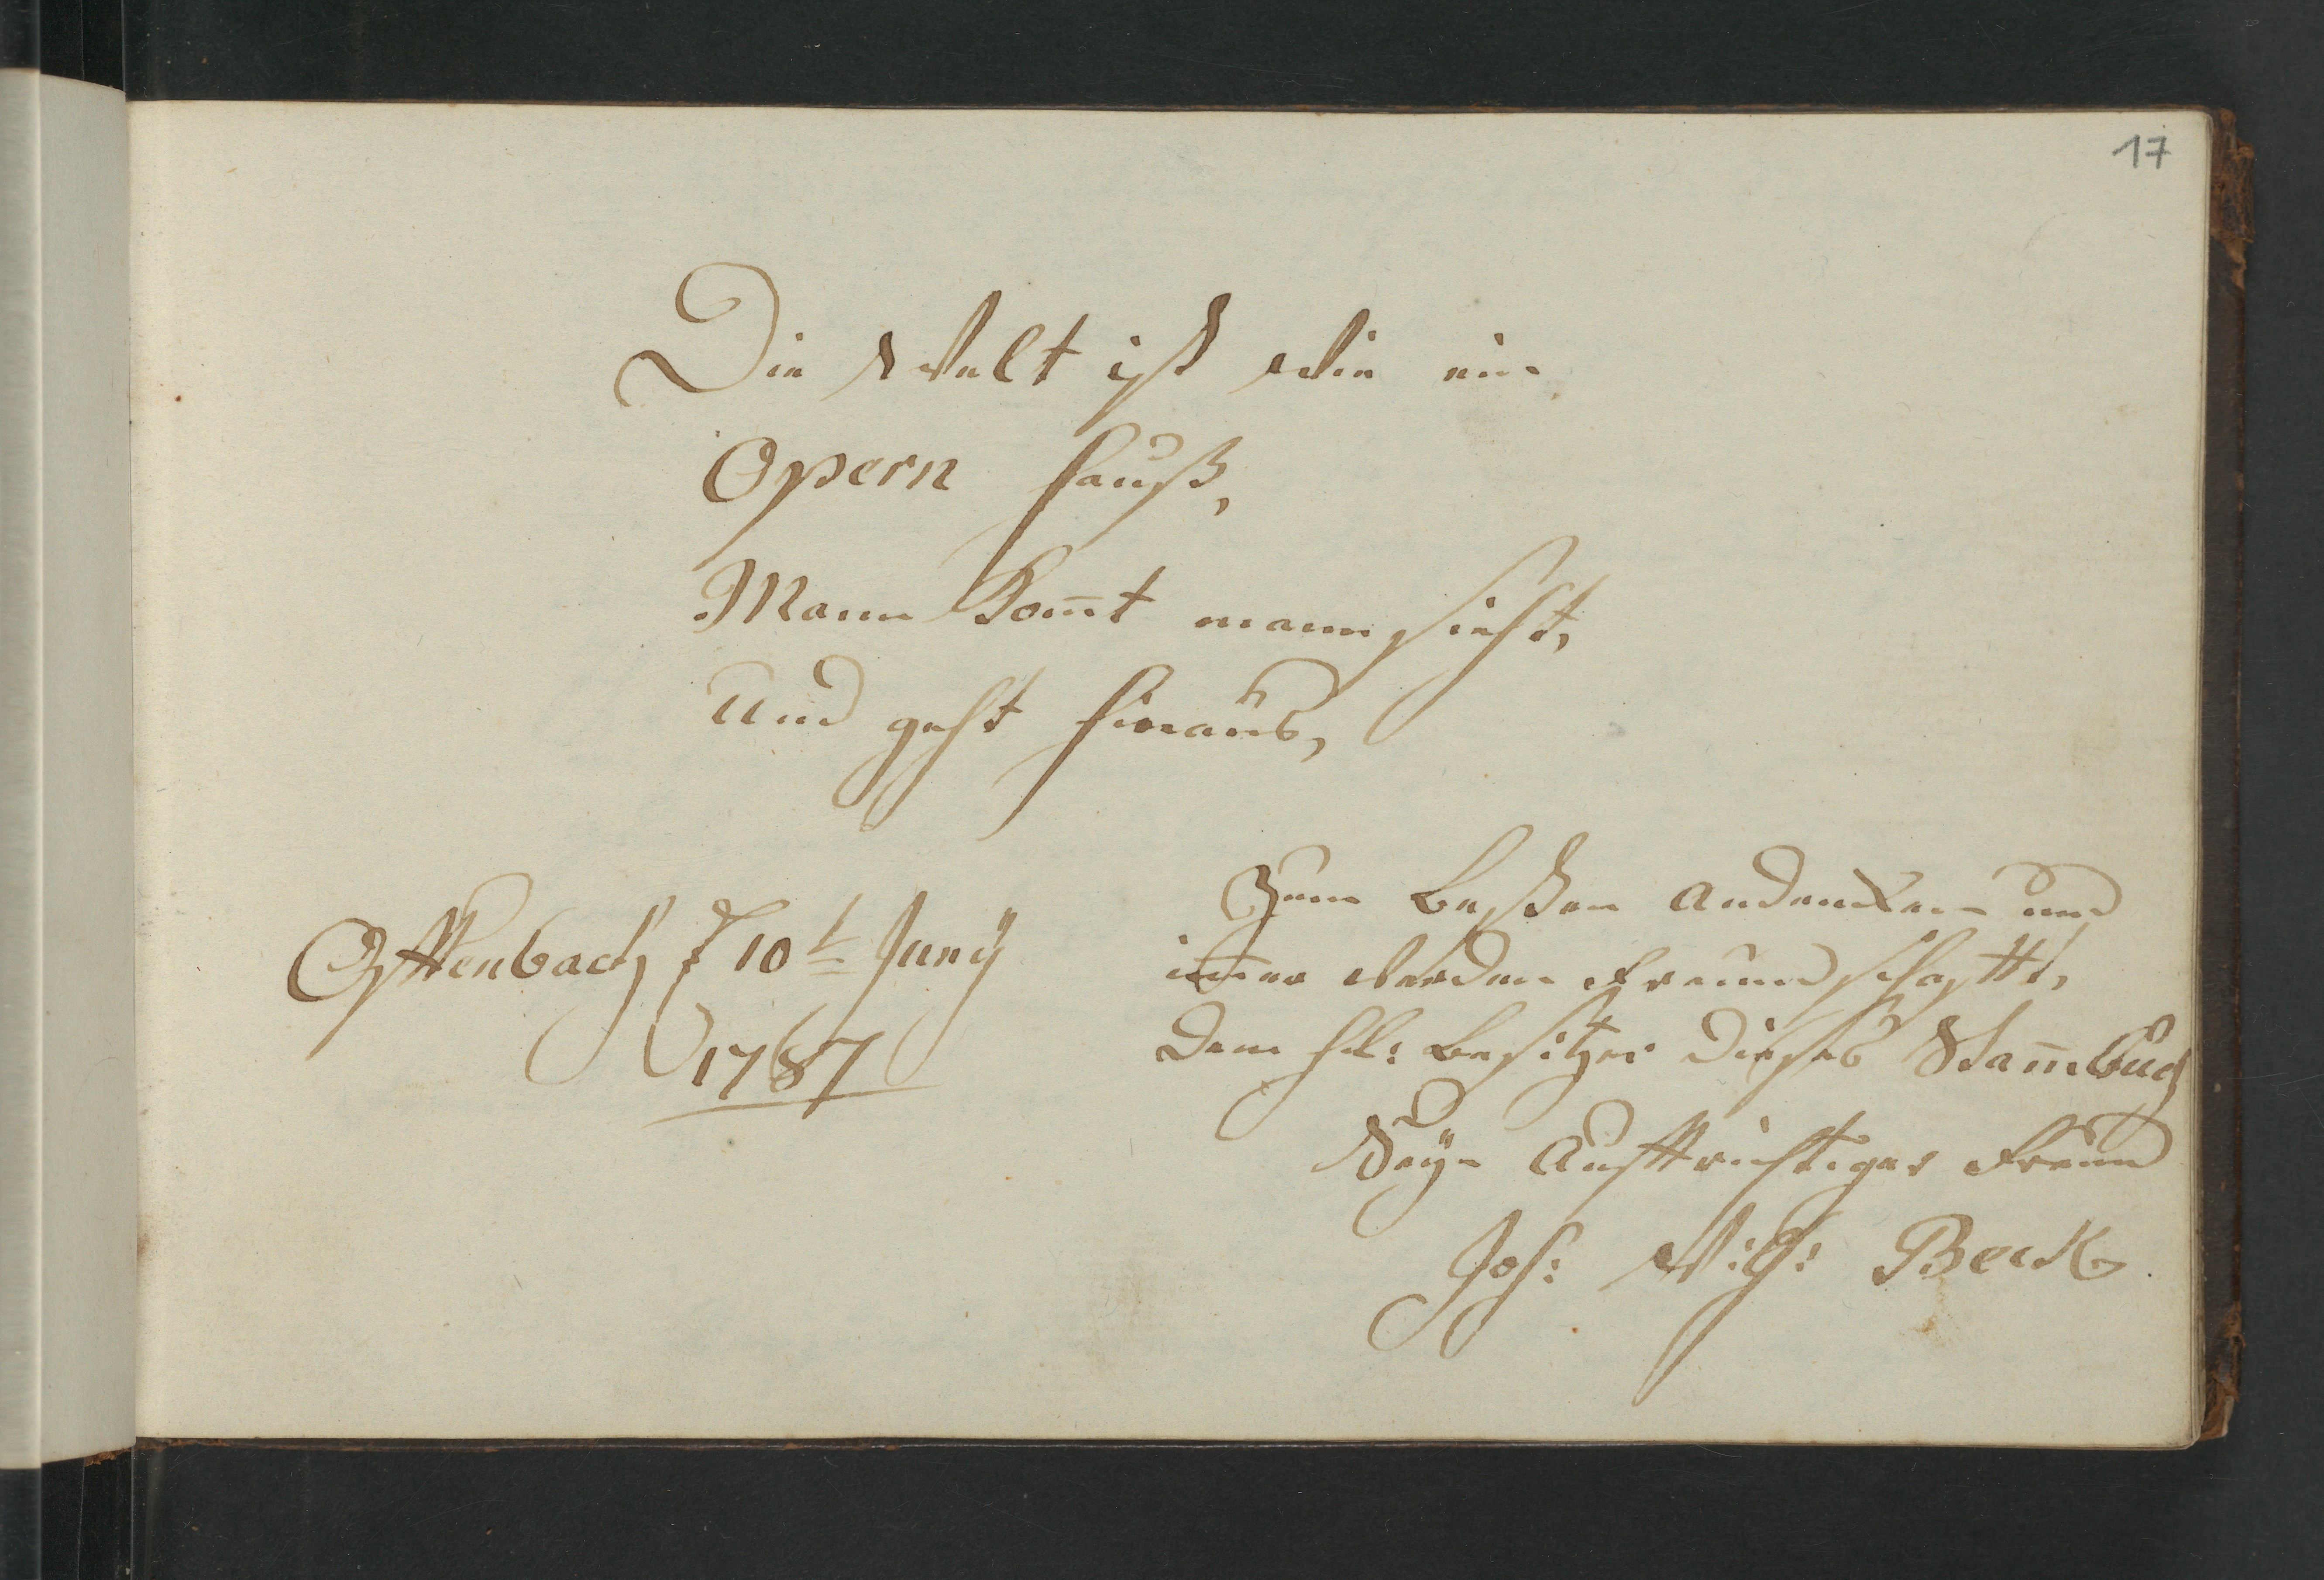 17
Die Welt ist Wie ein
Opern Hauß,
Mann Kom̄t mann sieht,
Und geht hinaus,
Offenbach d 10t Junÿ
1787
Zum Besten Andencken und
Werden Freundschafft,
Dem HE: Besitzer Dieses Stam̄buch
Seÿn Auffrichtiger Freund
Joh: Beck